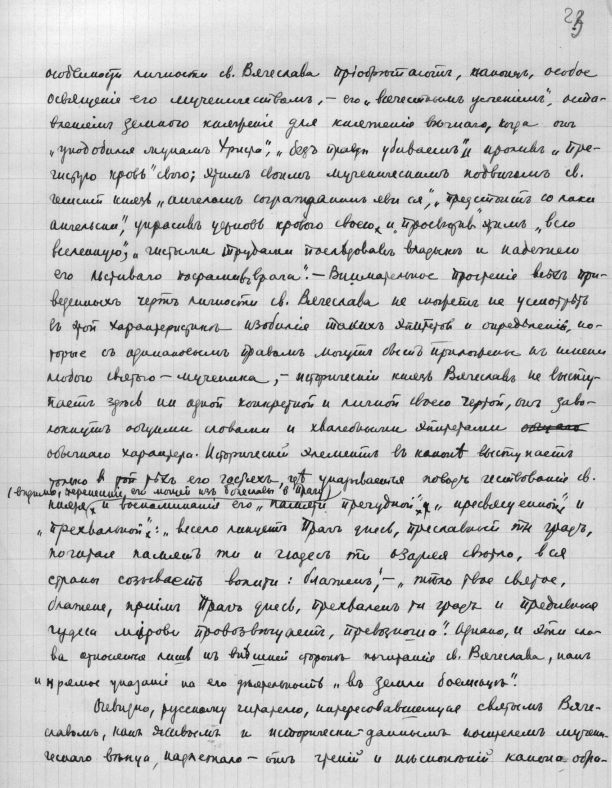 особенности личности св. Вячеслава пріобрѣтаютъ, наконецъ, особое
освященіе его мученичествомъ, – его „всечестнымъ успеніемъ“, оста-
вленіемъ земного княженія для княженія вѣчнаго, когда онъ
„уподобился мукамъ Христа“, „безъ правды убиваемъ“ и проливъ „пре-
чистую кровь“ свою; этимъ своимъ мученическимъ подвигомъ св.
чешскій князь „ангеломъ согражданинъ явися“, „предстоитъ со лики
ангельски“, украсивъ церковь кровью своею, и „просвѣтивъ“ этимъ „всю
вселенную“, „чистыми трудами послѣдовавъ владыкѣ и
его льстиваго посрамивъ врага“. – Внимательное прочтеніе всѣхъ при-
веденныхъ чертъ личности св. Вячеслава не можетъ не усмотрѣть
въ этой характеристикѣ изобилія такихъ эпитетовъ и опредѣленій, ко-
торые съ одинаковымъ правомъ могутъ быть приложены къ имени
любого святого – мученика, – историческій князь Вячеславъ не высту-
паетъ здѣсь ни одной конкретной и личной своею чертой, онъ заво-
локнутъ общими словами и хвалебными эпитетами
обычнаго характера. Историческій элементъ въ канонѣ выступаетъ
только въ той его частяхъ, гдѣ указывается поводъ чествованія св.
(видимо, перенесеніе его мощей изъ Болеславы въ Прагу)
князя, и воспоминанія его „памяти пречудной“, „пресвященной“ и
„прехвальной“: „весело ликуетъ Прагъ днесь, преславный ти градъ,
почитая память ти и чюдесъ ти озаряя свѣтло, вся
страны созываетъ вопити: блаженъ!“, – „тѣло твое святое,
блажене, пріимъ Прагъ днесь, прехваленъ ти градъ и предивная
чудеса мирови провозвѣщаетъ, превозноша“. Однако, и эти сло-
ва относятся лишь къ внѣшней сторонѣ почитанія св. Вячеслава, какъ
и прямое указаніе на его дѣятельность „въ земли боемьсцѣ“.
Очевидно, русскому читателю, интересовавшемуся святымъ Вяче-
славомъ, какъ живымъ и исторически-даннымъ носителемъ мучени-
ческаго вѣнца, надлежало – отъ чтеній и пѣснопѣній канона обра-